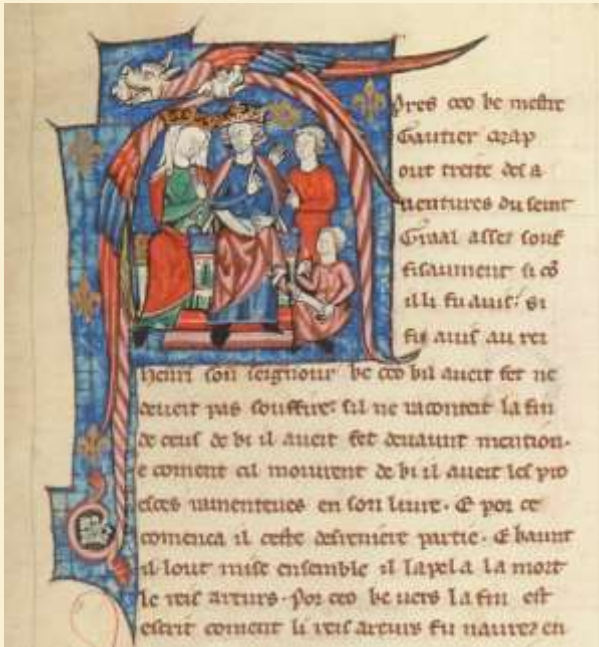 Apres ceo ke mestre
Gautier Map
out treite des a
uentures du seint
Graal assez souf
fisaument si cō
il li fu auis: si
fu auis au rei
henri son seignour ke ceo kil aueit fet ne
deueit pas souffire: sil ne racontoit la fin
de ceus de ki il aueit fet deuaunt mention.
e coment cil morurent de ki il aueit les pro
esces ramenteues en son liure. E por ce
comenca il ceste desreniere partie. E kaunt
il lout mise ensemble il lapela la mort
le reis arturs. Por ceo ke uers la fin est
escrit coment li reis arturs fu naurez en